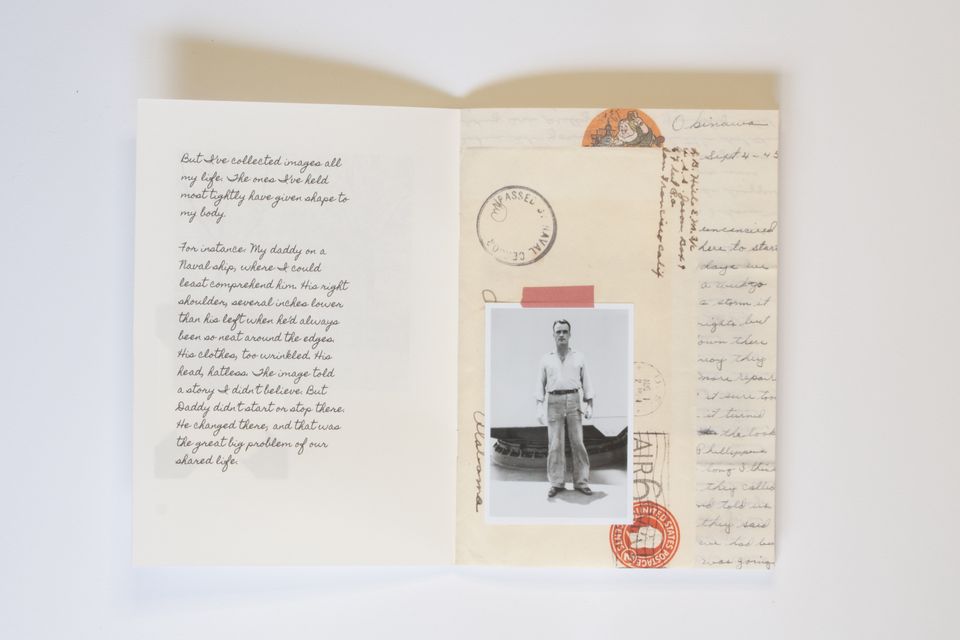 But I've collected images all
my life. The ones I've held
most tightly have given shape to
my body.
For instance: My daddy on a
Naval ship, where I could
least comprehend him. His right
shoulder, several inches lower
than his left when he'd always
been so neat around the edges.
His clothes, too wrinkled. His
head, hatless. The image told
a story I didn't believe. But
Daddy didn't start or stop there.
He changed there, and that was
the great big problem of our
shared life.
Okinawa
Sept 4-45
San Francisco Calif
NAVAL
here to start
days we
a storm it
rights, but
own there
way they
more repair
it sure too
it turned
the took
Phillippines
long I thin
they called
nd told us
they said
was going
AUG
AIR
UNITED STATES POSTAGE
6 CENTS